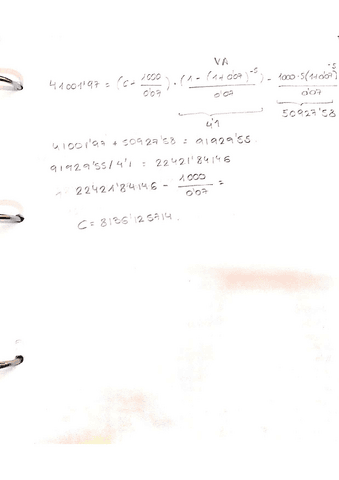 VA
41001'97 = (C + 1000/0'07) · (1 - (1+0'07)^-5 / 0'07) - 1000·5(1+0'07)^-5 / 0'07
4'1 50927'58
41001'97 + 50927'58 = 91929'55
91929'55/4'1 = 22421'84146
22421'84146 - 1000/0'07 =
C = 8136'125714.